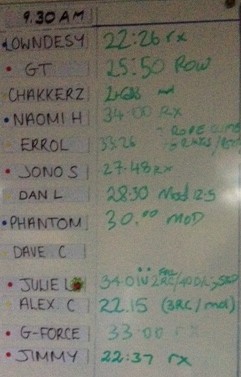 9.30 AM
LOWNDESY 22:26 rx
GT 25:50 ROW
CHAKKERZ
NAOMI H 34:00 RX
ERROL 33:26
JONO S 27:48 RX
DAN L 28:30 Mod 12.5
PHANTOM 30.00 MOD
DAVE C
JULIE L 34:01
ALEX C 22.15 (3RC/mod)
G-FORCE 33:00 rx
JIMMY 22:37 rx